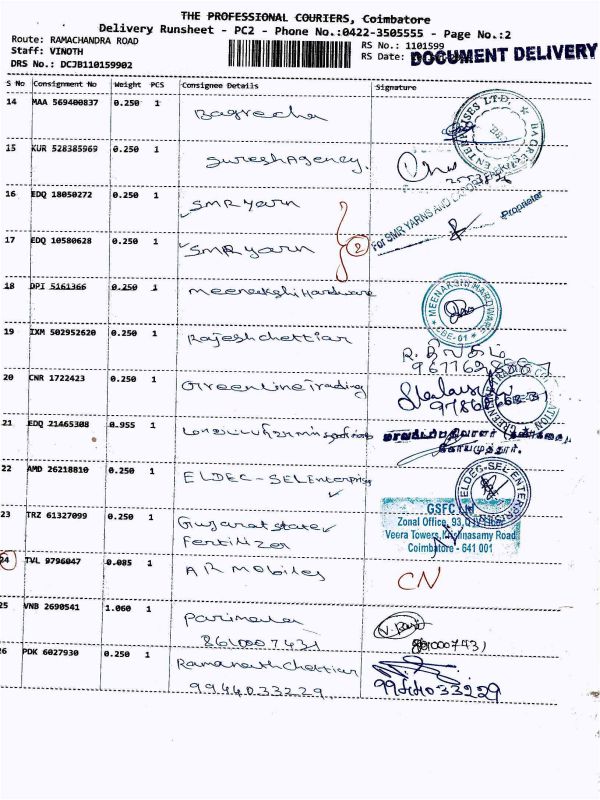 THE PROFESSIONAL COURIERS, Coimbatore
Delivery Runsheet - PC2 - Phone No.:0422-3505555 - Page No.:2
Route: RAMACHANDRA ROAD
Staff: VINOTH
DRS No.: DCJB110159902
RS No.: 1101599
RS Date:
DOCUMENT DELIVERY
S No Consignment No Weight PCS Consignee Details Signature
14 MAA 569400837 0.250 1 Bagrecha
BAGRECHA ENTERPRISES LTD.
15 KUR 528385969 0.250 1 Suresh Agency.
16 EDQ 18050272 0.250 1 SMR Yarn
For SMR YARNS AND
Proprietor
17 EDQ 10580628 0.250 1 SMR Yarn 2
18 DPI 5161366 0.250 1 Meenakshi Hardware
MEENAKSHI HARDWARE
CBE-01
19 IXM 502952620 0.250 1 Rajesh chettiar
20 CNR 1722423 0.250 1 Greenline Trading
21 EDQ 21465308 0.955 1
கோயமுத்தூர்.
22 AMD 26218810 0.250 1 ELDEC-SEL Enterprises
ELDEC-SEL ENTERPRISES
23 TRZ 61327099 0.250 1 Gujarat state
Fertilizer
GSFC Ltd
Zonal Office, 93, IV Floor
Veera Towers, Krishnasamy Road
Coimbatore - 641 001
24 TVL 9796047 0.085 1 AR Mobiles CN
25 VNB 2690541 1.060 1 Parimala
8610007431
8610007431
26 PDK 6027930 0.250 1 Ramanath Chettiar
9944033229 9944033229